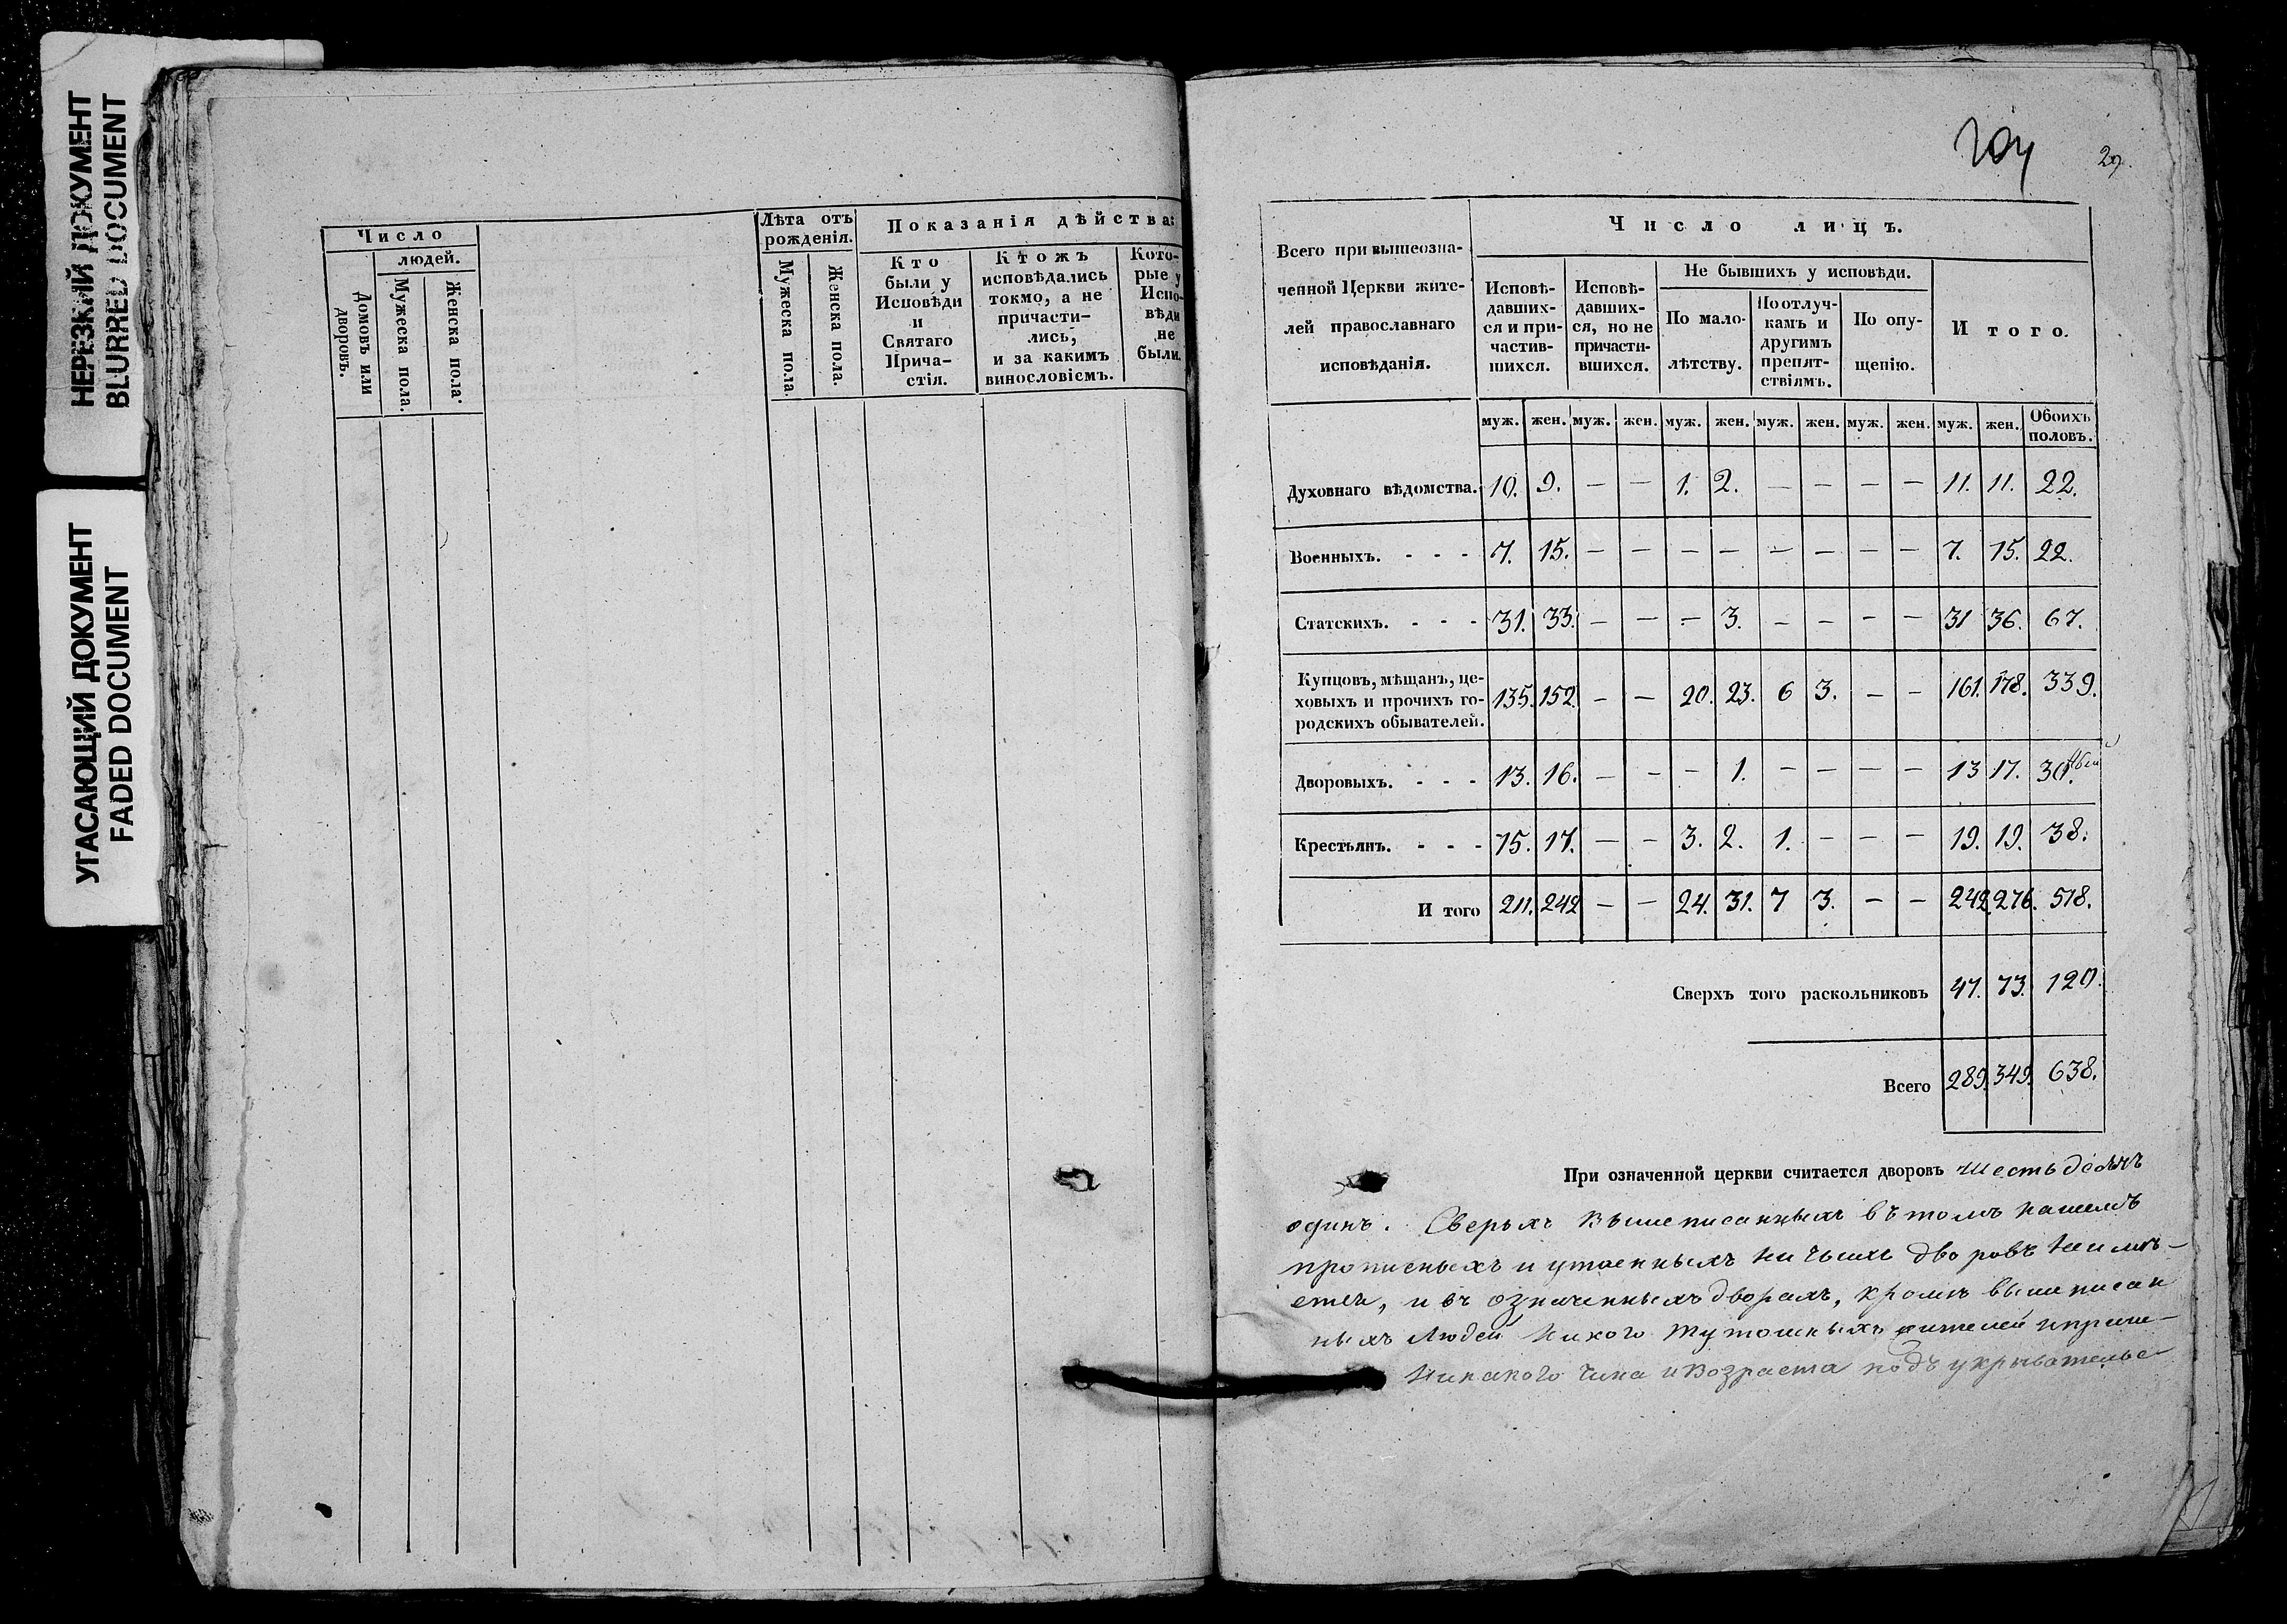 НЕРЕЗКИЙ ДОКУМЕНТ
BLURRED DOCUMENT
УГАСАЮЩИЙ ДОКУМЕНТ
FADED DOCUMENT
Число
людей.
Домовъ или дворовъ.
Мужеска пола.
Женска пола.
Лѣта отъ
рожденія.
Мужеска пола.
Женска пола.
Показанія дѣйства:
Кто
были у
Исповѣди
и
Святаго
Прича-
стія.
Ктожъ
исповѣдались
токмо, а не
причасти-
лись,
и за какимъ
винословіемъ.
Кото-
рые у
Испо-
вѣди
не
были.
204 29.
Всего при вышеозна-
ченной Церкви жите-
лей православнаго
исповѣданія.
Число лицъ.
Исповѣ-
давших-
ся и при-
частив-
шихся.
Исповѣ-
давших-
ся, но не
причасти-
вшихся.
Не бывшихъ у исповѣди.
По мало-
лѣтству.
По отлуч-
камъ и
другимъ
препят-
ствіямъ.
По опу-
щенію.
Итого.
муж. жен. муж. жен. муж. жен. муж. жен. муж. жен. муж. жен. Обоихъ половъ.
Духовнаго вѣдомства. 10. 9. — — 1. 2. — — — — 11. 11. 22.
Военныхъ. - - - 7. 15. — — — — — — — — 7. 15. 22.
Статскихъ. - - - 31. 33. — — — 3. — — — — 31 36. 67.
Купцовъ, мѣщанъ, це-
ховыхъ и прочихъ го-
родскихъ обывателей. 135. 152. — — 20. 23. 6 3. — — 161. 178. 339.
Дворовыхъ. - - - 13. 16. — — — 1. — — — — 13 17. 30.
Крестьянъ. - - - 15. 17. — — 3. 2. 1. — — — 19. 19. 38.
И того 211. 242 — — 24. 31. 7 3. — — 242. 276. 518.
Сверхъ того раскольниковъ 47. 73. 120.
Всего 289. 349. 638.
При означенной церкви считается дворовъ шестьдесятъ
одинъ. Сверьхъ вышеписанныхъ въ томъ нашемъ
прописныхъ и утаенныхъ ни чьихъ дворовъ неимѣ-
етсѧ, и въ означенныхъ дворахъ, кромѣ вышеписан
ныхъ людей никого тутошныхъ жителей и прише-
никакого чина и возраста подъ укрывательс